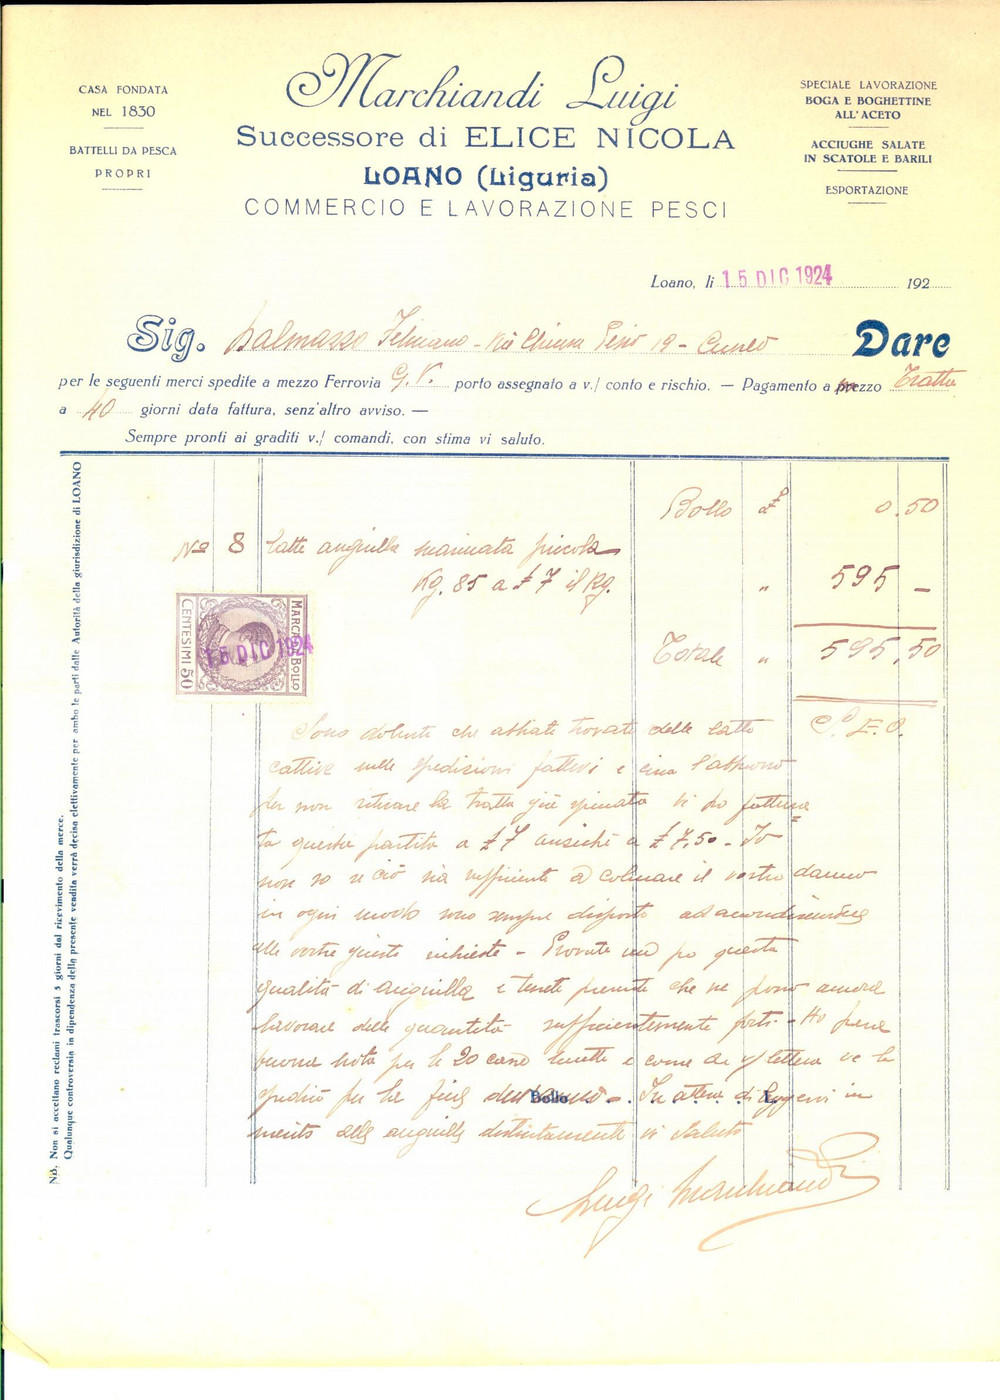 CASA FONDATA
NEL 1830
BATTELLI DA PESCA
PROPRI
Marchiandi Luigi
Successore di ELICE NICOLA
LOANO (Liguria)
COMMERCIO E LAVORAZIONE PESCI
SPECIALE LAVORAZIONE
BOGA E BOGHETTINE
ALL'ACETO
ACCIUGHE SALATE
IN SCATOLE E BARILI
ESPORTAZIONE
Loano, li 15 DIC 1924 192
Sig. Dalmasso - Via Chiusa Pesio 19 - Cuneo Dare
per le seguenti merci spedite a mezzo Ferrovia G. V. porto assegnato a v./ conto e rischio. — Pagamento a mezzo Tratta
a 40 giorni data fattura, senz'altro avviso. —
Sempre pronti ai graditi v./ comandi, con stima vi saluto.
Bollo £ 0.50
No 8 latte anguilla marinata piccola
Kg. 85 a £ 7 il Kg. " 595 -
Totale " 595,50
S. E. O.
MARCA DA BOLLO
CENTESIMI 50
15 DIC 1924
Sono dolente che abbiate trovate delle latte
cattive nelle spedizioni fattevi e
per non ritirare la tratta già vi ho fattura
ta questa partita a £ 7 anziché a £ 7,50 - Io
non so se ciò sia sufficiente a colmare il vostro danno
in ogni modo sono sempre disposto ad accondiscendere
alle vostre giuste richieste - Provate un po questa
qualità di anguilla e tenete presente che ne posso ancora
lavorare delle quantità sufficientemente forti - Ho preso
buona nota per le 20 e come da v/ lettera ve le
spedirò per la fine - In attesa di leggervi in
Bollo L.
merito alle anguille distintamente vi saluto
Luigi Marchiandi
NB. Non si accettano reclami trascorsi 5 giorni dal ricevimento della merce.
Qualunque controversia in dipendenza della presente vendita verrà decisa elettivamente per ambo le parti dalle Autorità della giurisdizione di LOANO